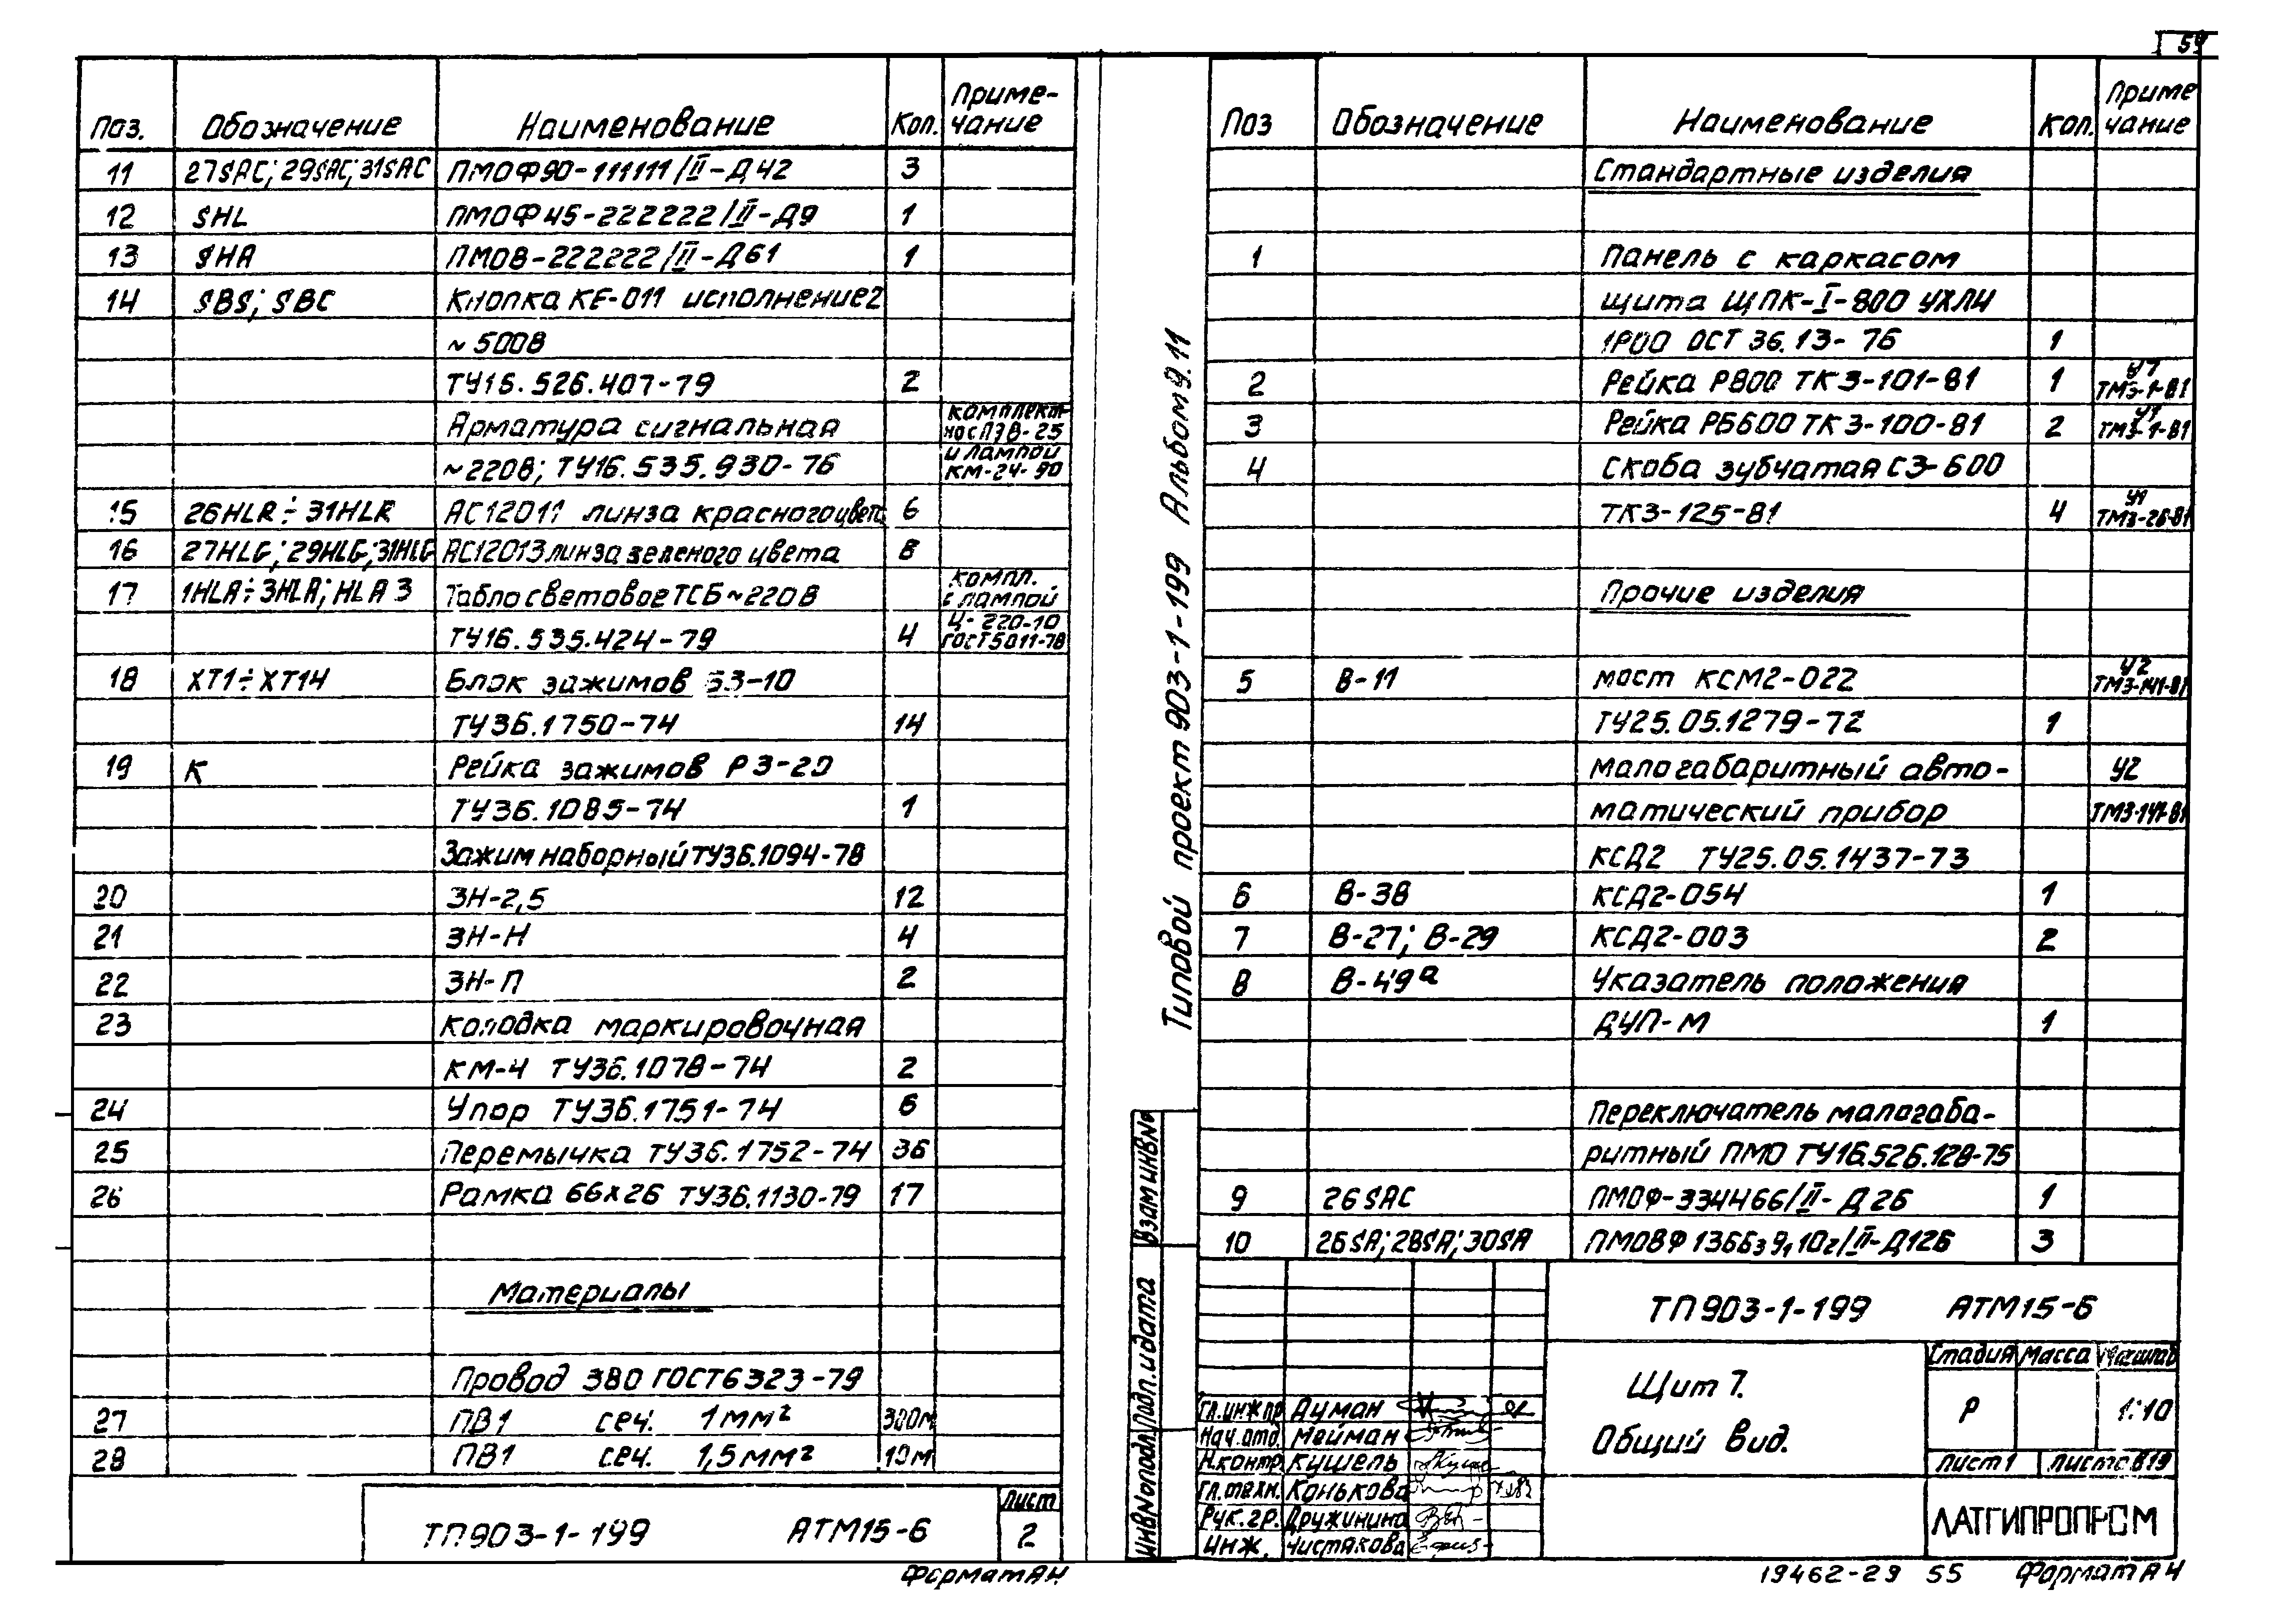 Поз. Обозначение Наименование Кол. Приме-
чание
11 27SAC; 29SAC; 31SAC ПМОФ90-111111/II-Д42 3
12 SHL ПМОФ45-222222/II-Д9 1
13 SHA ПМОВ-222222/II-Д61 1
14 SBS; SBC Кнопка КЕ-011 исполнение2
~500В
ТУ16.526.407-79 2
Арматура сигнальная комплект-
но с ПЭВ-25
~220В; ТУ16.535.930-76 и лампой
КМ-24-90
15 26HLR÷31HLR АС12011 линза красного цвета 6
16 27HLG; 29HLG; 31HLG АС12013 линза зеленого цвета 8
17 1HLA÷3HLA; HLA3 Табло световое ТСБ ~220В компл.
с лампой
ТУ16.535.424-79 4 Ц-220-10
ГОСТ5011-78
18 XT1÷XT14 Блок зажимов БЗ-10
ТУ36.1750-74 14
19 К Рейка зажимов РЗ-20
ТУ36.1085-74 1
Зажим наборный ТУ36.1094-78
20 ЗН-2,5 12
21 ЗН-Н 4
22 ЗН-П 2
23 Колодка маркировочная
КМ-4 ТУ36.1078-74 2
24 Упор ТУ36.1751-74 6
25 Перемычка ТУ36.1752-74 36
26 Рамка 66х26 ТУ36.1130-79 17
Материалы
Провод 380 ГОСТ6323-79
27 ПВ1 сеч. 1мм² 300м
28 ПВ1 сеч. 1,5мм² 10м
ТП903-1-199 АТМ15-6 Лист
2
Формат А4
Типовой проект 903-1-199 Альбом 9.11
59
Поз Обозначение Наименование Кол. Приме
чание
Стандартные изделия
1 Панель с каркасом
щита ЩПК-I-800 УХЛ4
1Р00 ОСТ 36.13-76 1
2 Рейка Р800 ТК3-101-81 1 У7
ТМ3-1-81
3 Рейка РБ600 ТК3-100-81 2 У1
ТМ3-1-81
4 Скоба зубчатая СЗ-600
ТК3-125-81 4 У1
ТМ3-26-81
Прочие изделия
5 В-11 мост КСМ2-022 У2
ТМ3-141-81
ТУ25.05.1279-72 1
малогабаритный авто- У2
матический прибор ТМ3-141-81
КСД2 ТУ25.05.1437-73
6 В-38 КСД2-054 1
7 В-27; В-29 КСД2-003 2
8 В-49а Указатель положения
ДУП-М 1
Переключатель малогаба-
ритный ПМО ТУ16.526.128-75
9 26SAC ПМОФ-334466/II-Д26 1
10 26SA; 28SA; 30SA ПМОВФ 1366з9,10г/II-Д126 3
Взам инв№
Подп. и дата
Инв№ подл.
ТП903-1-199 АТМ15-6
Щит 7.
Общий вид.
Стадия Масса Масштаб
Р 1:10
Лист 1 Листов 19
ЛАТГИПРОПРОМ
Гл.инж.пр Думан
Нач.отд. Мейман
Н.контр. Кушель
Гл.техн. Конькова
Рук.гр. Дружинина
Инж. Чистякова
19462-29 55 Формат А4